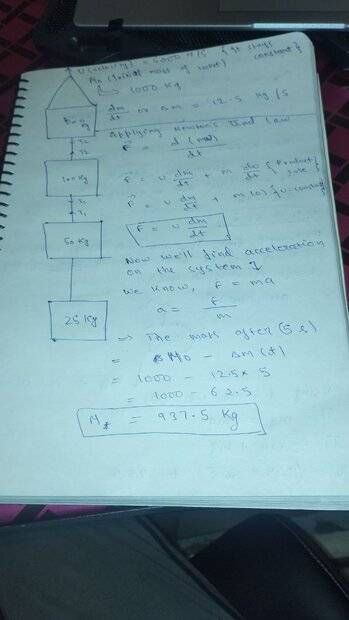 U (velocity) = 5000 m/s { it stays constant }
M₀ (Initial mass of rocket)
↳ 1000 Kg
dm/dt or ΔM = 12.5 kg/s
Applying Newton's IInd law
F = d(mv)/dt
F = v dm/dt + m dv/dt { Product rule }
F = v dm/dt + m(0) { v = constant
F = v dm/dt
Now we'll find acceleration
on the system
we know, F = ma
a = F/m
⇒ The mass after (5 s)
= M0 - ΔM (t)
= 1000 - 12.5 × 5
= 1000 - 62.5
= 937.5 Kg
Kg
T2
100 Kg
T1
T1
50 Kg
25 Kg